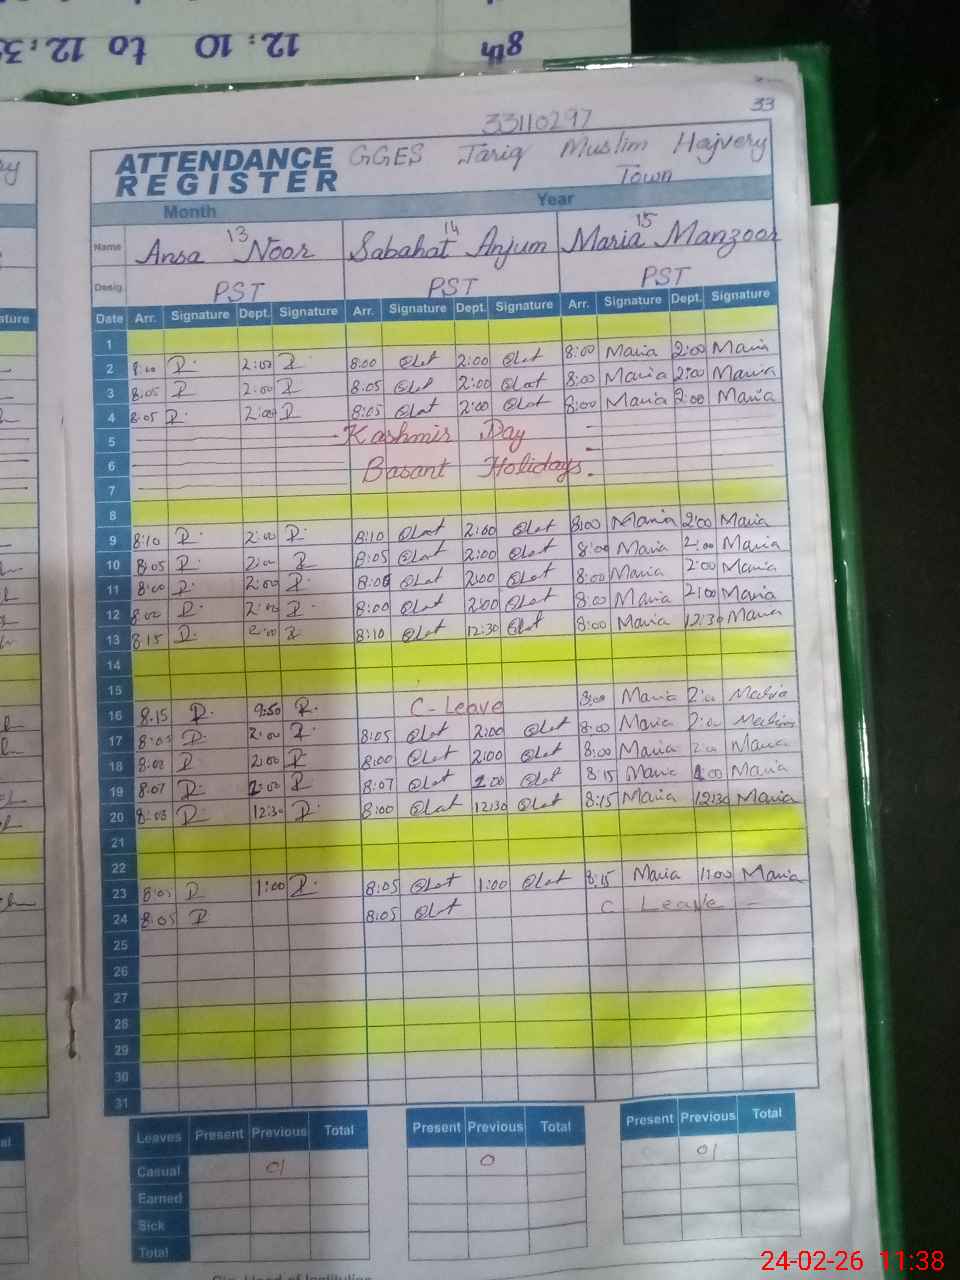 8th 12:10 to 12:3
33
33110297
ATTENDANCE REGISTER
GGES Tariq Muslim Hajvery Town
Month Year
Name Ansa 13 Noor Sabahat 14 Anjum Maria 15 Manzoor
Desig. PST PST PST
Date Arr. Signature Dept. Signature Arr. Signature Dept. Signature Arr. Signature Dept. Signature
1
2 8:00 2:00 8:00 2:00 8:00 Maria 2:00 Maria
3 8:05 2:00 8:05 2:00 8:00 Maria 2:00 Maria
4 8:05 2:00 8:05 2:00 8:00 Maria 2:00 Maria
5 Kashmir Day
6 Basant Holidays.
7
8
9 8:10 2:00 8:10 2:00 8:00 Maria 2:00 Maria
10 8:05 2:00 8:05 2:00 8:00 Maria 2:00 Maria
11 8:00 2:00 8:00 2:00 8:00 Maria 2:00 Maria
12 8:00 2:00 8:00 2:00 8:00 Maria 2:00 Maria
13 8:15 2:00 8:10 12:30 8:00 Maria 12:30 Maria
14
15
16 8:15 9:50 C-Leave 8:00 Maria 2:00 Maria
17 8:05 2:00 8:05 2:00 8:00 Maria 2:00 Maria
18 8:02 2:00 8:00 2:00 8:00 Maria 2:00 Maria
19 8:07 2:00 8:07 2:00 8:15 Maria 2:00 Maria
20 8:08 12:30 8:00 12:30 8:15 Maria 12:30 Maria
21
22
23 8:05 1:00 8:05 1:00 8:15 Maria 1:00 Maria
24 8:05 8:05 C Leave
25
26
27
28
29
30
31
Leaves Present Previous Total Present Previous Total Present Previous Total
Casual 01 0 01
Earned
Sick
Total
24-02-26 11:38